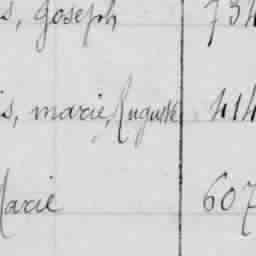 s, Joseph 734
s, marie, Auguste 414
Marie 607